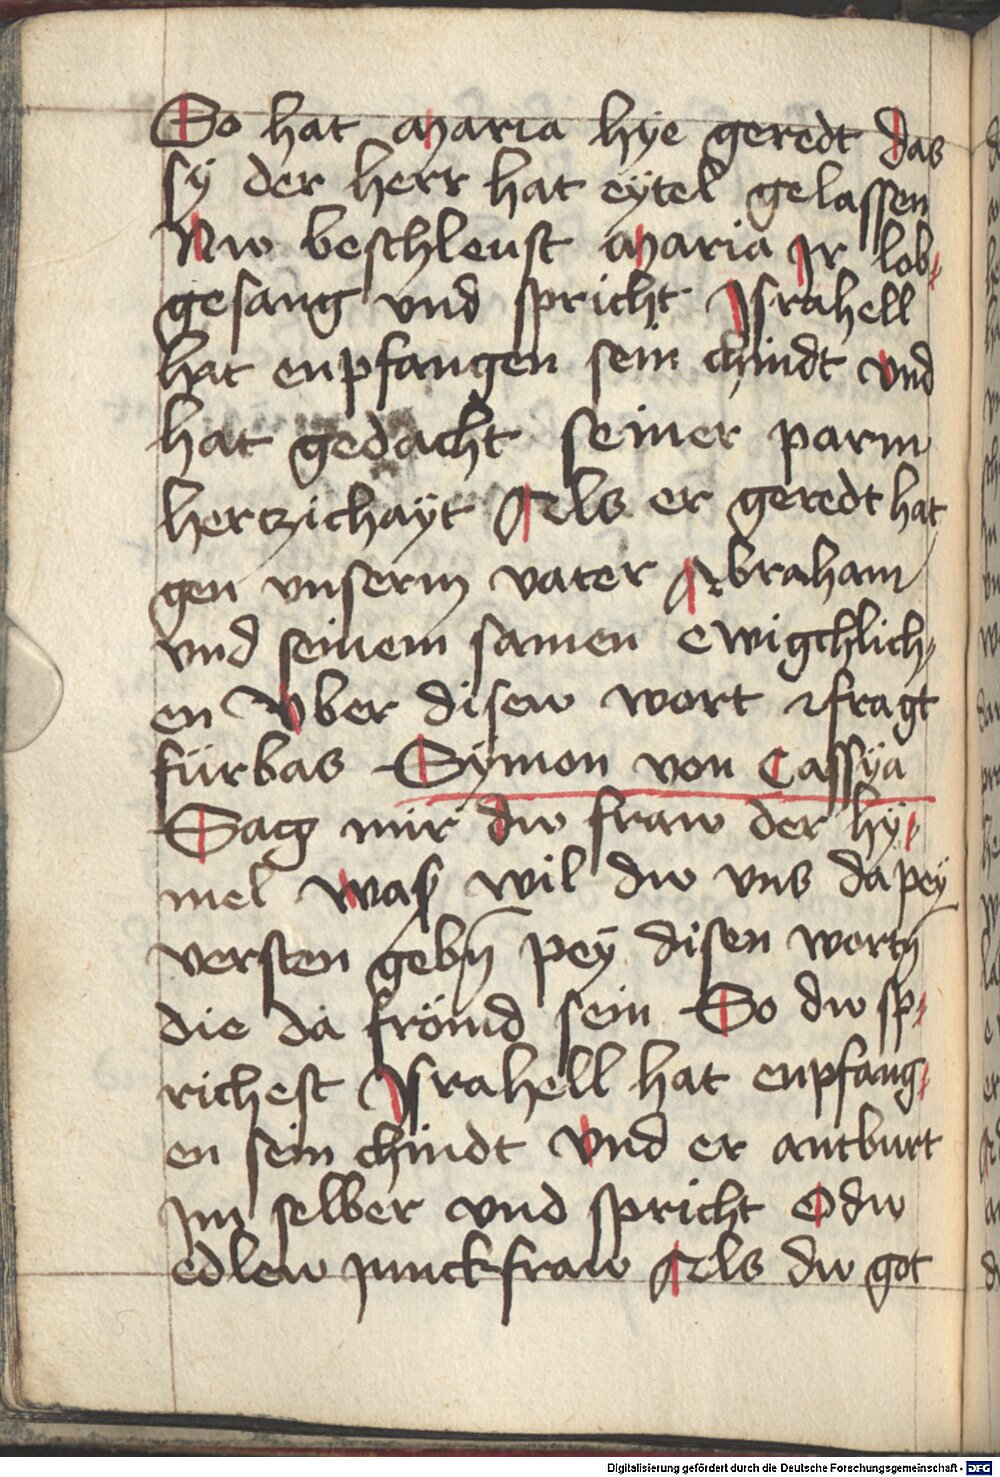 So hat Maria hye geredt das
sy der herr hat eytel gelassen
Nw beschleust Maria Ir lob-
gesang vnd spricht Israhell
hat enpfangen sein chindt vnd
hat gedacht seiner parm
hertzichaÿt Als er geredt hat
gen vnserm vater Abraham
vnd seinem samen ewigchlich-
en Vber disew wort fragt
fürbas Symon von Cassÿa
Sag mir dw fraw der hÿ-
mel was wil dw vns dapeÿ
versten gebn̄ peÿ disen wortn̄
die da frömd sein So dw sp-
richest Israhell hat enpfang-
en sein chindt vnd er antburt
Im selber vnd spricht O dw
edlew junckfraw Als dw got
Digitalisierung gefördert durch die Deutsche Forschungsgemeinschaft - DFG